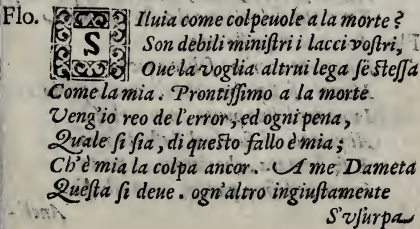 Flo. SIluia come colpeuole a la morte?
Son debili miniſtri i lacci voſtri,
Oue la voglia altrui lega ſe ſteſſa
Come la mia. Prontiſſimo a la morte
Veng'io reo de l'error, ed ogni pena,
Quale ſi ſia, di queſto fallo è mia;
Ch'è mia la colpa ancor. A me Dameta
Queſta ſi deue. ogn'altro ingiuſtamente
S'vſurpa